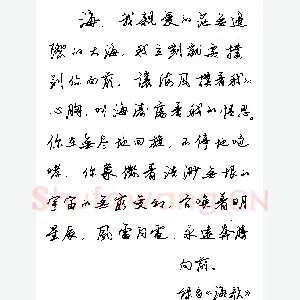 海，我亲爱的茫无边
际的大海，我立刻就要扑
到你面前。让海风摸着我的
心胸，以海涛露着我的情思。
你在无尽地回旋，不停地咆
哮，你象征着浩渺无垠的
宇宙的无穷变幻，召唤着明
星辰，风雷月电，永远奔腾
向前。
《海歌》